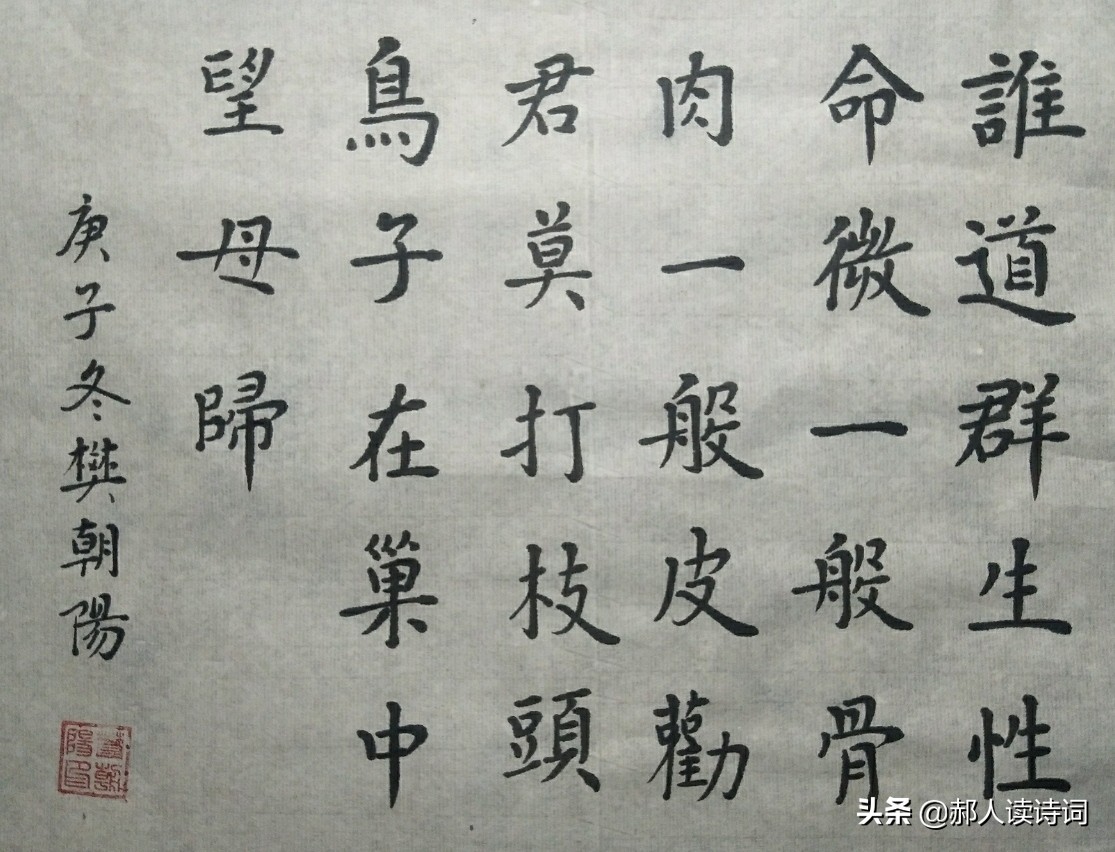 誰道群生性
命微一般骨
肉一般皮勸
君莫打枝頭
鳥子在巢中
望母歸
庚子冬樊朝陽
头条 @郝人读诗词